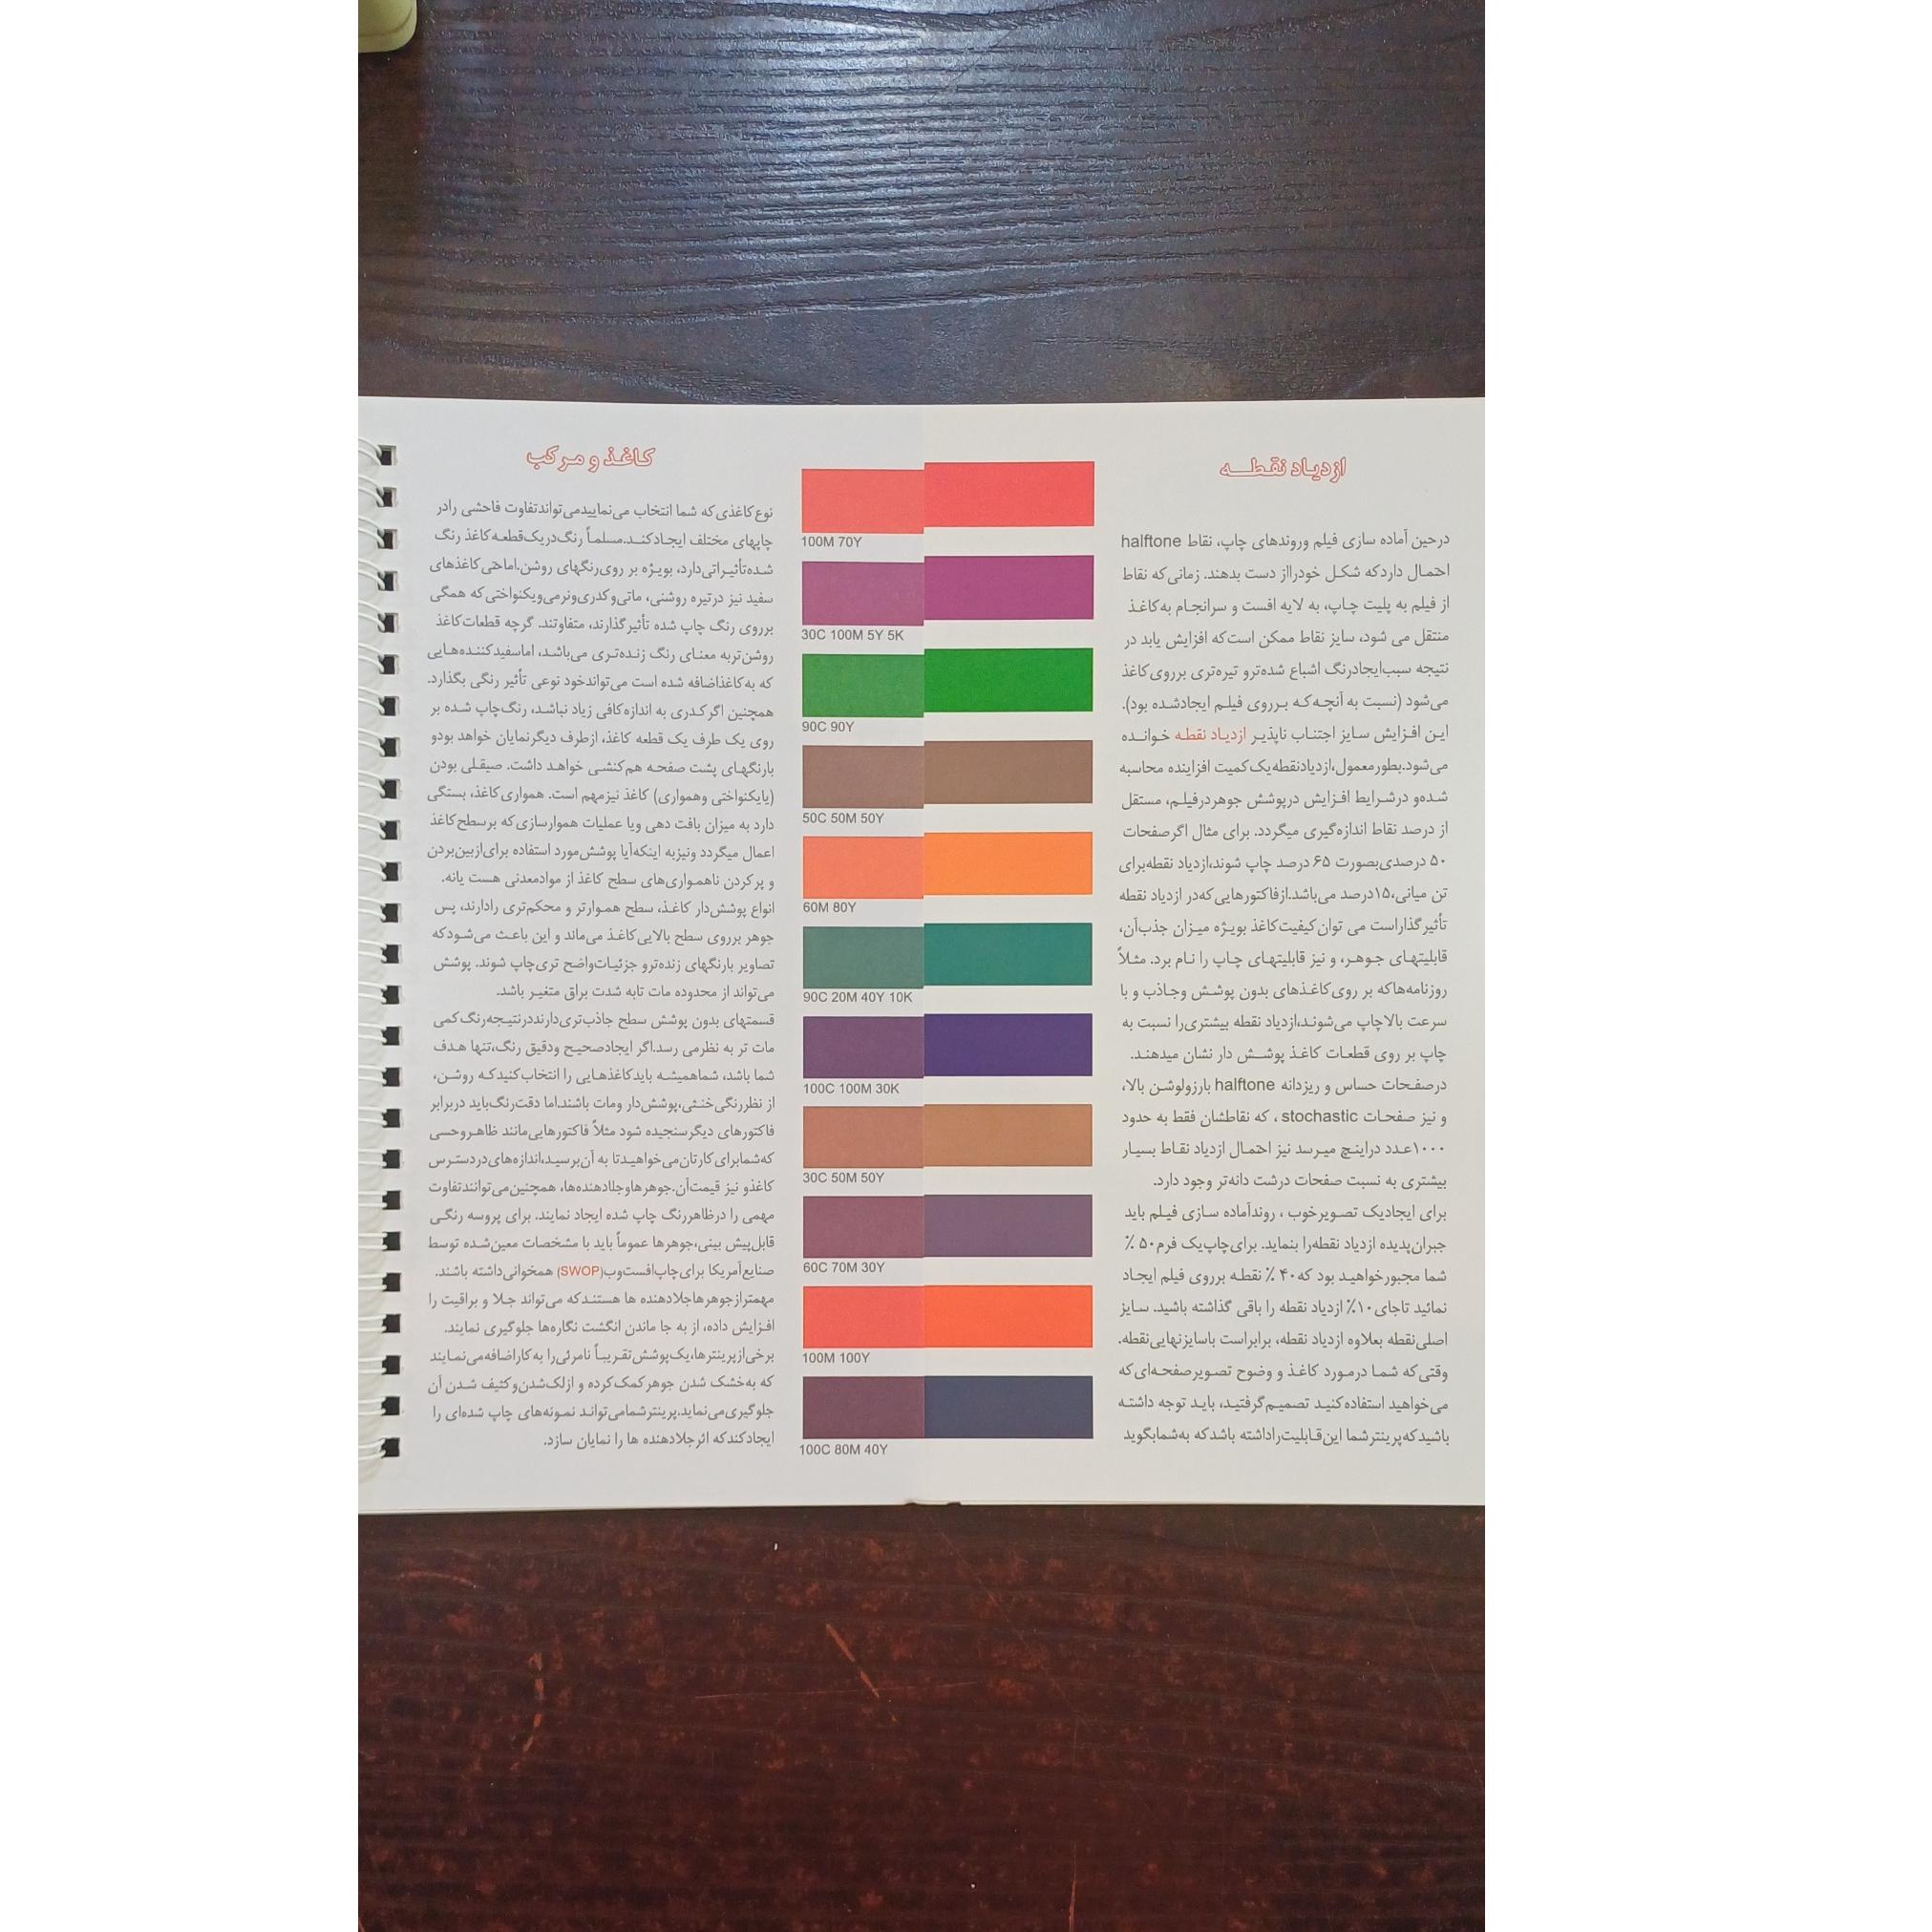 ازدیاد نقطه
درحین آماده سازی فیلم وروندهای چاپ، نقاط halftone
احتمال داردکه شکل خودرااز دست بدهند. زمانی‌که نقاط
از فیلم به پلیت چاپ، به لایه افست و سرانجام به‌کاغذ
منتقل می شود، سایز نقاط ممکن است‌که افزایش یابد در
نتیجه سبب‌ایجادرنگ اشباع شده‌ترو تیره‌تری برروی‌کاغذ
می‌شود (نسبت به آنچه‌که برروی فیلم ایجادشده بود).
این افزایش سایز اجتناب ناپذیر ازدیاد نقطه خوانده
می‌شود.بطورمعمول،ازدیادنقطه‌یک‌کمیت افزاینده محاسبه
شده‌و درشرایط افزایش درپوشش جوهردرفیلم، مستقل
از درصد نقاط اندازه‌گیری میگردد. برای مثال اگرصفحات
۵۰ درصدی‌بصورت ۶۵ درصد چاپ شوند،ازدیاد نقطه‌برای
تن میانی،۱۵درصد می‌باشد.ازفاکتورهایی که‌در ازدیاد نقطه
تأثیرگذاراست می توان‌کیفیت‌کاغذ بویژه میزان جذب‌آن،
قابلیتهای جوهر، و نیز قابلیتهای چاپ را نام برد. مثلاً
روزنامه‌هاکه بر روی‌کاغذهای بدون پوشش وجاذب و با
سرعت بالاچاپ می‌شوند،ازدیاد نقطه بیشتری‌را نسبت به
چاپ بر روی قطعات کاغذ پوشش دار نشان میدهند.
درصفحات حساس و ریزدانه halftone بارزولوشن بالا،
و نیز صفحات stochastic ، که نقاطشان فقط به حدود
۱۰۰۰عدد دراینچ میرسد نیز احتمال ازدیاد نقاط بسیار
بیشتری به نسبت صفحات درشت دانه‌تر وجود دارد.
برای ایجادیک تصویرخوب ، روندآماده سازی فیلم باید
جبران‌پدیده ازدیاد نقطه‌را بنماید. برای‌چاپ‌یک فرم۵۰ ٪
شما مجبورخواهید بود که۴۰ ٪ نقطه برروی فیلم ایجاد
نمائید تاجای۱۰٪ ازدیاد نقطه را باقی گذاشته باشید. سایز
اصلی‌نقطه بعلاوه ازدیاد نقطه، برابراست باسایزنهایی‌نقطه.
وقتی‌که شما درمورد کاغذ و وضوح تصویرصفحه‌ای‌که
می‌خواهید استفاده‌کنید تصمیم‌گرفتید، باید توجه داشته
باشیدکه‌پرینترشما این‌قابلیت‌راداشته باشدکه به‌شمابگوید
100M 70Y
30C 100M 5Y 5K
90C 90Y
50C 50M 50Y
60M 80Y
90C 20M 40Y 10K
100C 100M 30K
30C 50M 50Y
60C 70M 30Y
100M 100Y
100C 80M 40Y
کاغذ و مرکب
نوع‌کاغذی‌که شما انتخاب می‌نماییدمی‌تواندتفاوت فاحشی رادر
چاپهای مختلف ایجادکند.مسلماً رنگ‌دریک‌قطعه‌کاغذ رنگ
شده‌تأثیراتی‌دارد، بویژه بر روی‌رنگهای روشن.اماحتی‌کاغذهای
سفید نیز درتیره روشنی، ماتی‌وکدری‌ونرمی‌ویکنواختی‌که همگی
برروی رنگ چاپ شده تأثیرگذارند، متفاوتند. گرچه قطعات‌کاغذ
روشن‌تربه معنای رنگ زنده‌تری می‌باشد، اماسفیدکننده‌هایی
که به‌کاغذاضافه شده است می‌تواندخود نوعی تأثیر رنگی بگذارد.
همچنین اگرکدری به اندازه‌کافی زیاد نباشد، رنگ‌چاپ شده بر
روی یک طرف یک قطعه کاغذ، ازطرف دیگرنمایان خواهد بودو
بارنگهای پشت صفحه هم‌کنشی خواهد داشت. صیقلی بودن
(یایکنواختی وهمواری) کاغذ نیزمهم است. همواری‌کاغذ، بستگی
دارد به میزان بافت دهی ویا عملیات هموارسازی‌که برسطح‌کاغذ
اعمال میگردد ونیزبه اینکه‌آیا پوشش‌مورد استفاده برای‌ازبین‌بردن
و پرکردن ناهمواری‌های سطح کاغذ از موادمعدنی هست یانه.
انواع پوشش‌دار کاغذ، سطح هموارتر و محکم‌تری رادارند، پس
جوهر برروی سطح بالایی‌کاغذ می‌ماند و این باعث می‌شودکه
تصاویر بارنگهای زنده‌ترو جزئیات‌واضح تری‌چاپ شوند. پوشش
می‌تواند از محدوده مات تابه شدت براق متغیر باشد.
قسمتهای بدون پوشش سطح جاذب‌تری‌دارنددرنتیجه‌رنگ‌کمی
مات تر به نظرمی رسد.اگر ایجادصحیح ودقیق رنگ،تنها هدف
شما باشد، شماهمیشه بایدکاغذهایی را انتخاب‌کنیدکه روشن،
از نظررنگی‌خنثی،پوشش‌دار ومات باشند.اما دقت‌رنگ‌باید دربرابر
فاکتورهای دیگرسنجیده شود مثلاً فاکتورهایی‌مانند ظاهروحسی
که‌شمابرای‌کارتان‌می‌خواهیدتا به آن‌برسید،اندازه‌های‌دردسترس
کاغذو نیز قیمت‌آن.جوهرهاوجلادهنده‌ها، همچنین‌می‌توانندتفاوت
مهمی را درظاهررنگ چاپ شده ایجاد نمایند. برای پروسه رنگی
قابل‌پیش بینی،جوهرها عموماً باید با مشخصات معین‌شده توسط
صنایع‌آمریکا برای‌چاپ‌افست‌وب(SWOP) همخوانی‌داشته باشند.
مهمترازجوهرهاجلادهنده ها هستندکه می‌تواند جلا و براقیت را
افزایش داده، از به جا ماندن انگشت نگاره‌ها جلوگیری نمایند.
برخی‌ازپرینترها،یک‌پوشش‌تقریباً نامرئی‌را به‌کاراضافه‌می‌نمایند
که به‌خشک شدن جوهرکمک‌کرده و ازلک‌شدن‌وکثیف شدن آن
جلوگیری‌می‌نماید.پرینترشمامی‌تواند نمونه‌های چاپ شده‌ای را
ایجادکندکه اثرجلادهنده ها را نمایان سازد.